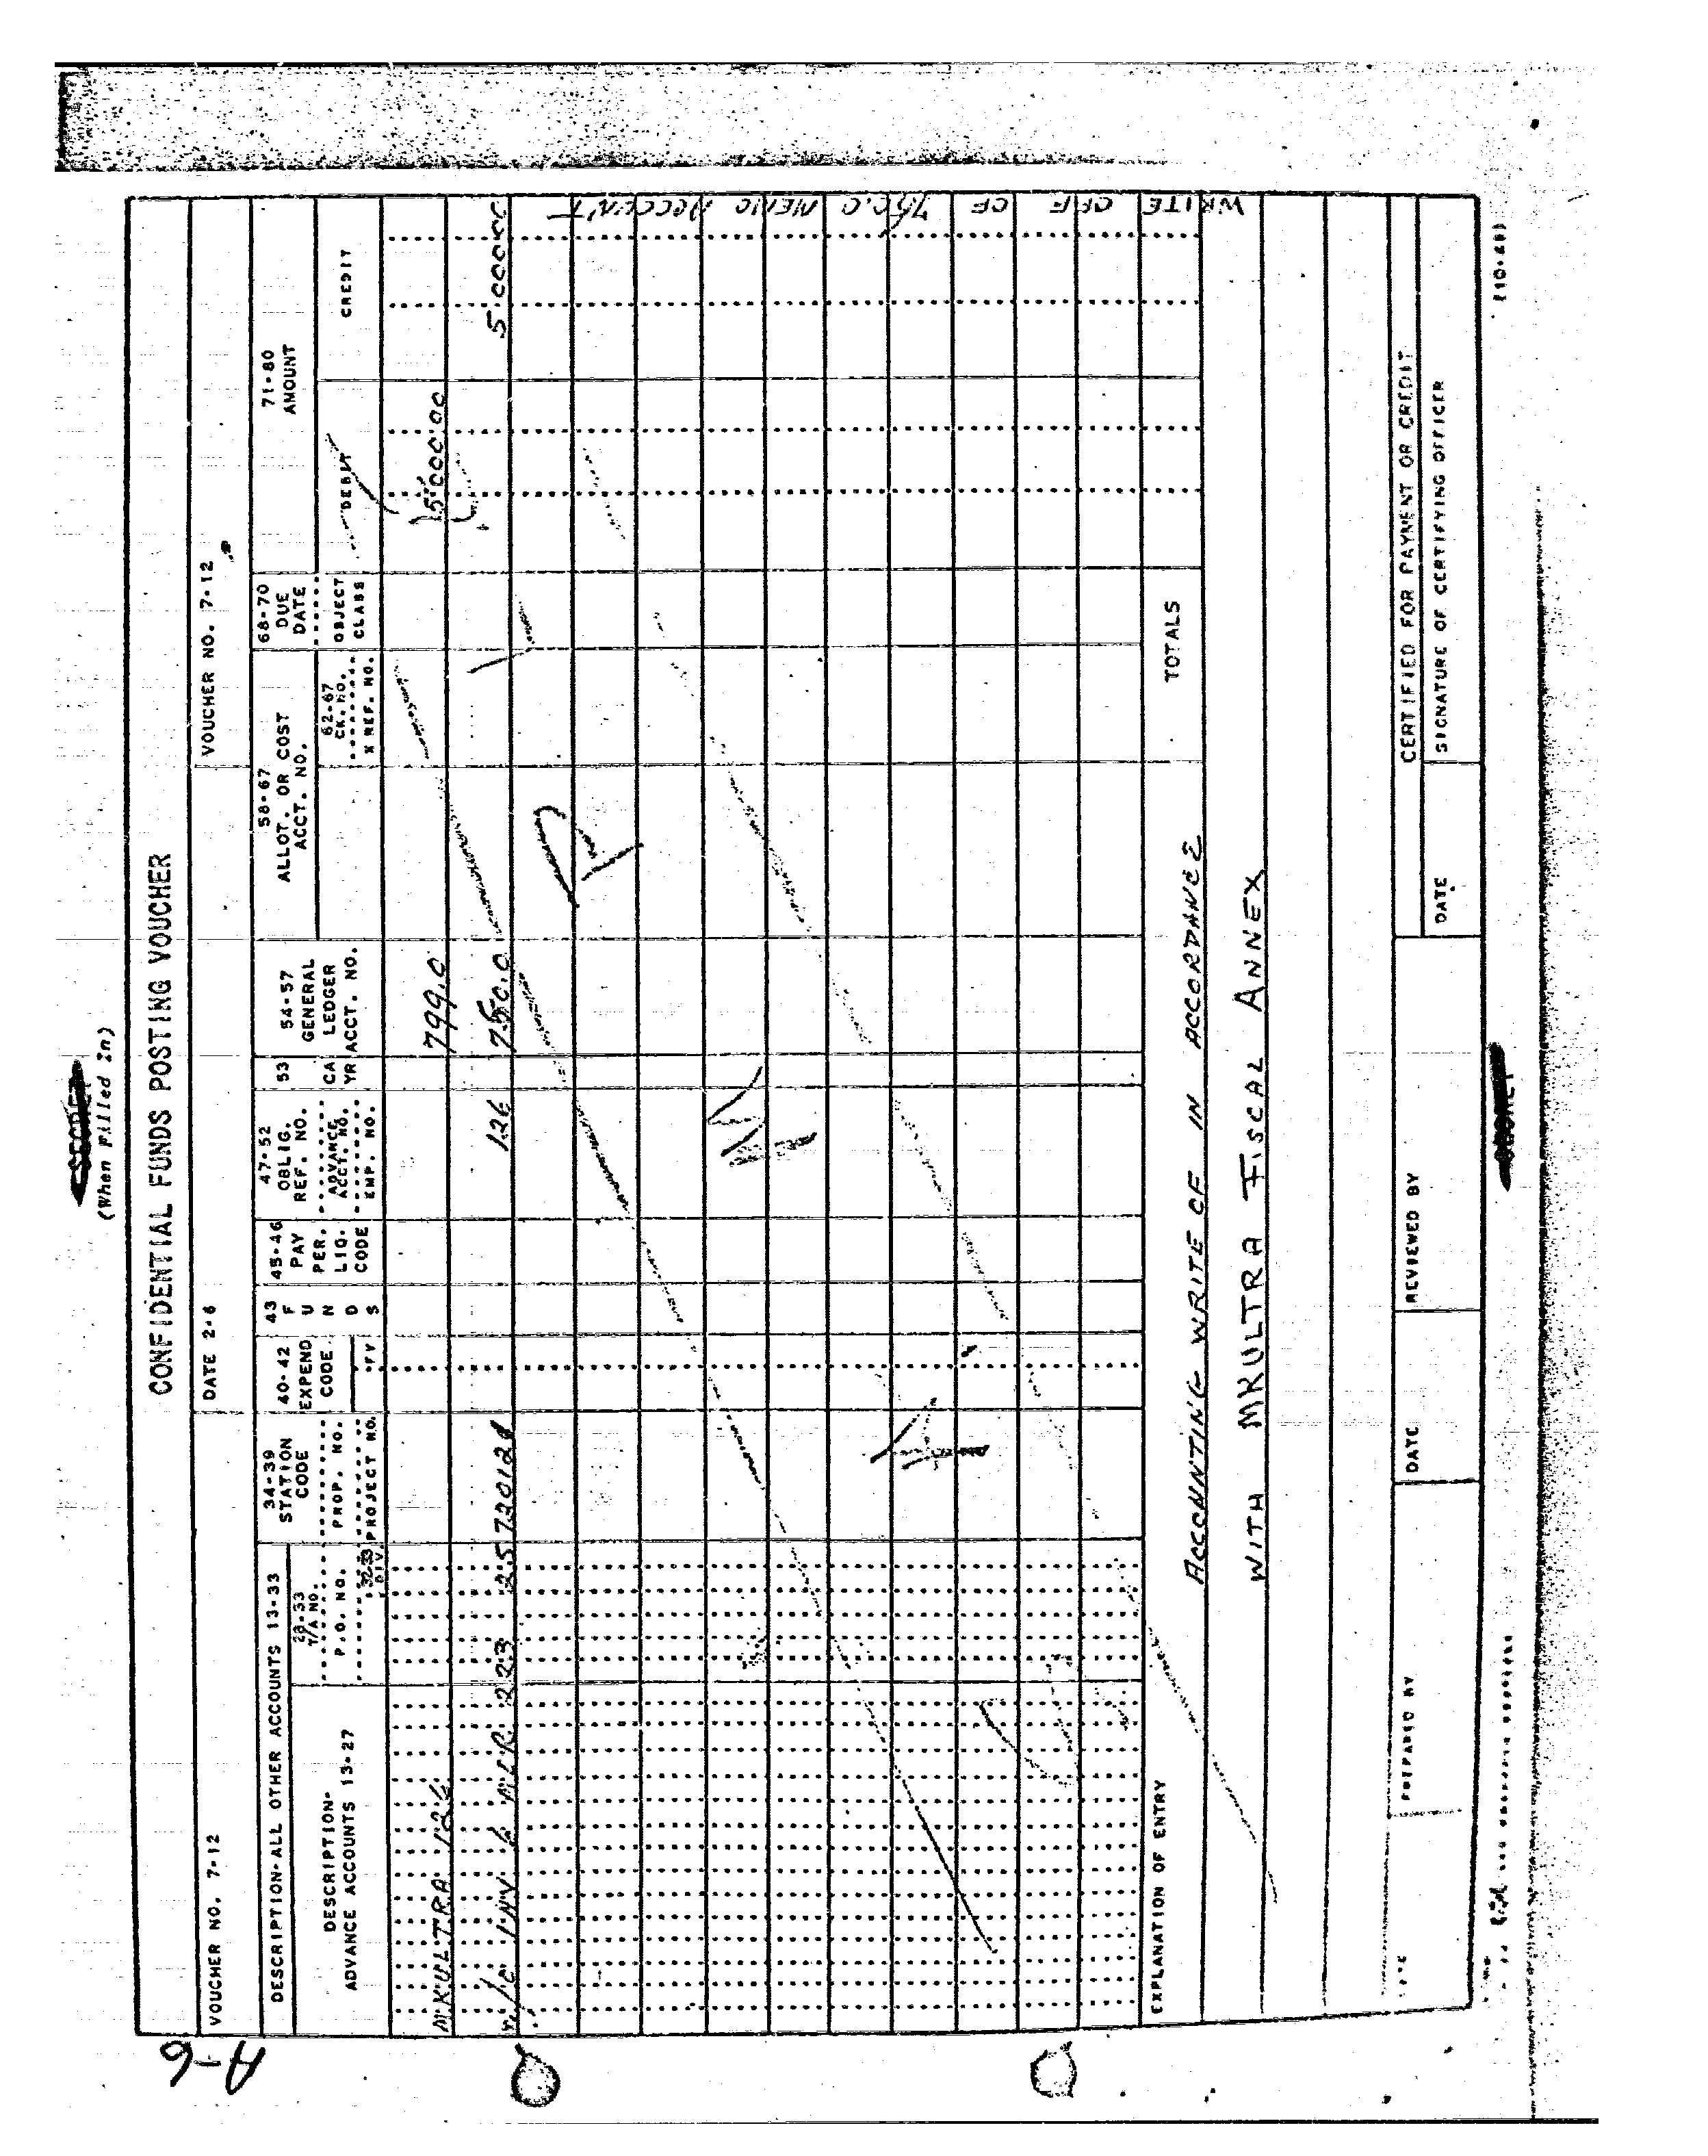 SECRET
(When Filled In)
CONFIDENTIAL FUNDS POSTING VOUCHER
VOUCHER NO. 7-12
DATE 2-6
VOUCHER NO. 7-12
DESCRIPTION-ALL OTHER ACCOUNTS 13-33
DESCRIPTION-
ADVANCE ACCOUNTS 13-27
28-33
T/A NO.
P.O. NO.
32-33
DIV.
34-39
STATION
CODE
PROP. NO.
PROJECT NO.
40-42
EXPEND
CODE
FY
43
F
U
N
D
S
45-46
PAY
PER.
LIQ.
CODE
47-52
OBLIG.
REF. NO.
ADVANCE
ACCT. NO.
EMP. NO.
53
CA
YR
54-57
GENERAL
LEDGER
ACCT. NO.
58-67
ALLOT. OR COST
ACCT. NO.
62-67
CK. NO.
X REF. NO.
68-70
DUE
DATE
OBJECT
CLASS
71-80
AMOUNT
DEBIT
CREDIT
MKULTRA 126 799.0 5000.00
INV 6 223 2.5720121 126 750.0 5000.00
WRITE OFF OF 750.0 MEMO ACCOUNT
TOTALS
EXPLANATION OF ENTRY
ACCOUNTING WRITE OF IN ACCORDANCE
WITH MKULTRA FISCAL ANNEX
PREPARED BY
DATE
REVIEWED BY
CERTIFIED FOR PAYMENT OR CREDIT
DATE
SIGNATURE OF CERTIFYING OFFICER
SECRET
A-6